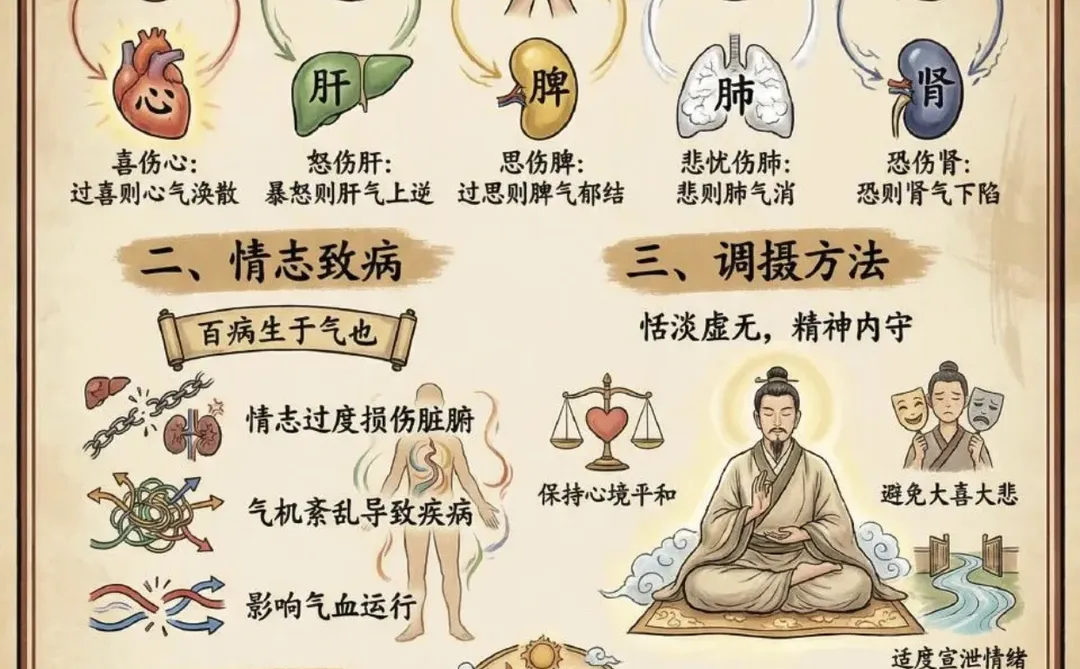 心
肝
脾
肺
肾
喜伤心：
过喜则心气涣散
怒伤肝：
暴怒则肝气上逆
思伤脾：
过思则脾气郁结
悲忧伤肺：
悲则肺气消
恐伤肾：
恐则肾气下陷
二、情志致病
百病生于气也
情志过度损伤脏腑
气机紊乱导致疾病
影响气血运行
三、调摄方法
恬淡虚无，精神内守
保持心境平和
避免大喜大悲
适度宣泄情绪